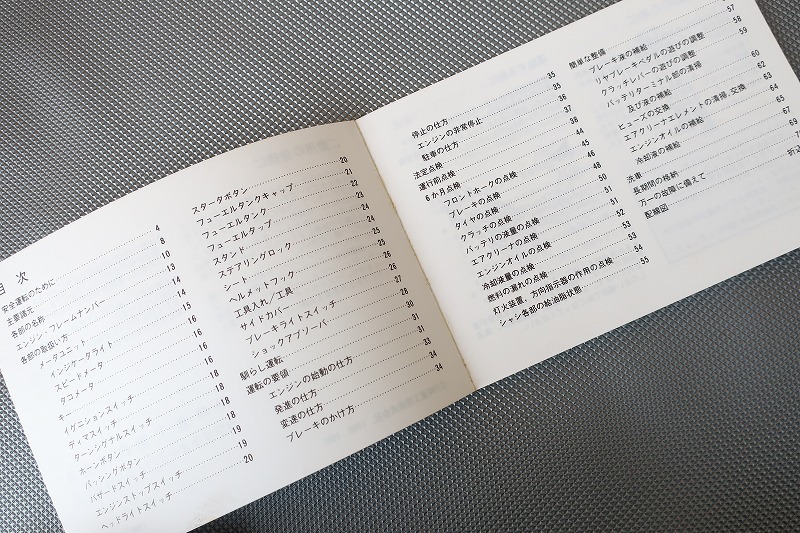 目 次
安全運転のために 4
主要諸元 8
各部の名称 10
エンジン・フレームナンバー 13
各部の取扱い方
メータユニット 14
インジケータライト 14
スピードメータ 15
タコメータ 16
キー 16
イグニションスイッチ 16
ディマスイッチ 18
ターンシグナルスイッチ 18
ホーンボタン 18
パッシングボタン 18
ハザードスイッチ 19
エンジンストップスイッチ 19
ヘッドライトスイッチ 20
スタータボタン 20
フューエルタンクキャップ 21
フューエルタンク 22
フューエルタップ 23
スタンド 24
ステアリングロック 24
シート 25
ヘルメットフック 25
工具入れ/工具 26
サイドカバー 26
ブレーキライトスイッチ 27
ショックアブソーバ 28
馴らし運転 30
運転の要領 31
エンジンの始動の仕方 31
発進の仕方 33
変速の仕方 34
ブレーキのかけ方 34
停止の仕方 35
エンジンの非常停止 35
駐車の仕方 36
法定点検 37
運行前点検 38
6か月点検 44
フロントホークの点検 45
ブレーキの点検 46
タイヤの点検 48
クラッチの点検 50
バッテリの液量の点検 51
エアクリーナの点検 51
エンジンオイルの点検 52
冷却液量の点検 53
燃料の漏れの点検 53
灯火装置、方向指示器の作用の点検 54
シャシ各部の給油脂状態 55
簡単な整備
ブレーキ液の補給 57
リヤブレーキペダルの遊びの調整 58
クラッチレバーの遊びの調整 59
バッテリターミナル部の清掃
及び液の補給 60
ヒューズの交換 62
エアクリーナエレメントの清掃、交換 63
エンジンオイルの補給 64
冷却液の補給 65
洗車 67
長期間の格納 69
万一の故障に備えて
配線図